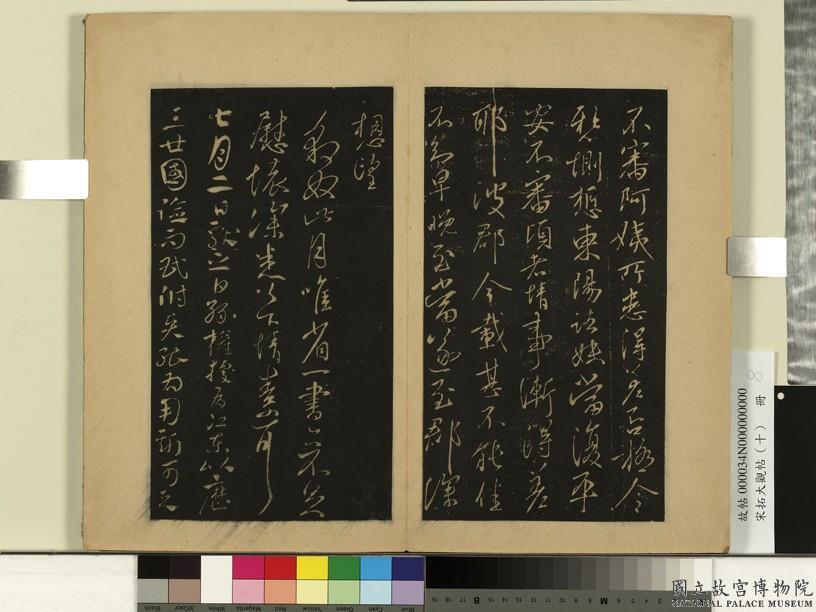 不審阿姨所患得差否極令
悬惻想東陽諸妹當復平
安不審頃者情事漸得差
耶彼郡今載甚不能佳
不知早晚至當遂至郡深
想望
奴此月唯省一書不足
慰懷深悉以下情
七月二日獻之白孫權據有江東以歷
三世國險而民附此為用可
故帖000034N000000000
宋拓大觀帖(十) 冊
8
國立故宮博物院
NATIONAL PALACE MUSEUM